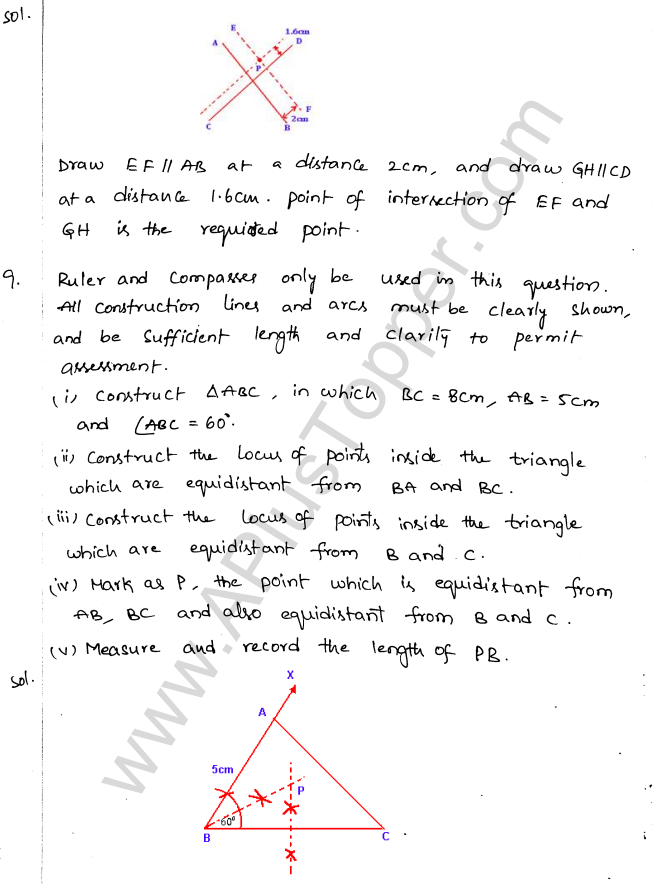 sol.
E
1.6cm
A
D
P
F
C
2cm
B
Draw EF || AB at a distance 2cm, and draw GH||CD
at a distance 1.6cm. point of intersection of EF and
GH is the required point.
9. Ruler and Compasses only be used in this question.
All construction lines and arcs must be clearly shown,
and be sufficient length and clarity to permit
assessment.
(i) Construct △ABC, in which BC = 8cm, AB = 5cm
and ∠ABC = 60°.
(ii) Construct the locus of points inside the triangle
which are equidistant from BA and BC.
(iii) Construct the locus of points inside the triangle
which are equidistant from B and C.
(iv) Mark as P, the point which is equidistant from
AB, BC and also equidistant from B and C.
(v) Measure and record the length of PB.
sol.
X
A
5cm
P
60°
B
C
www.APlusTopper.com